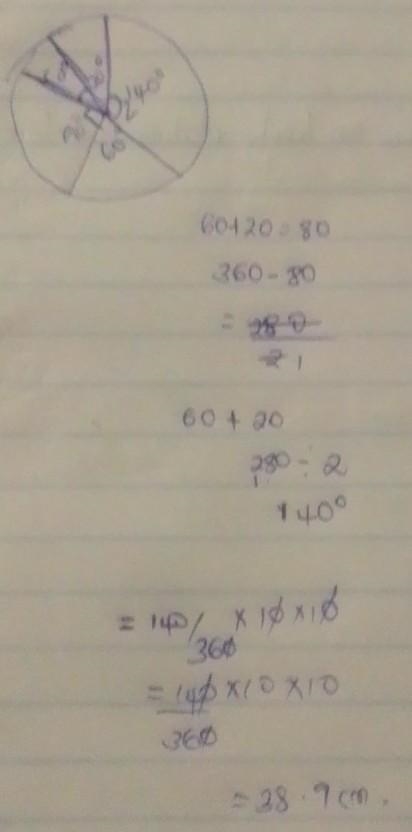 140°
60
60+20=80
360-80
= 280
2 1
60 + 20
280 ÷ 2
140°
= 140/360 × 10 × 10
= 140 × 10 × 10
360
= 38.9 cm.